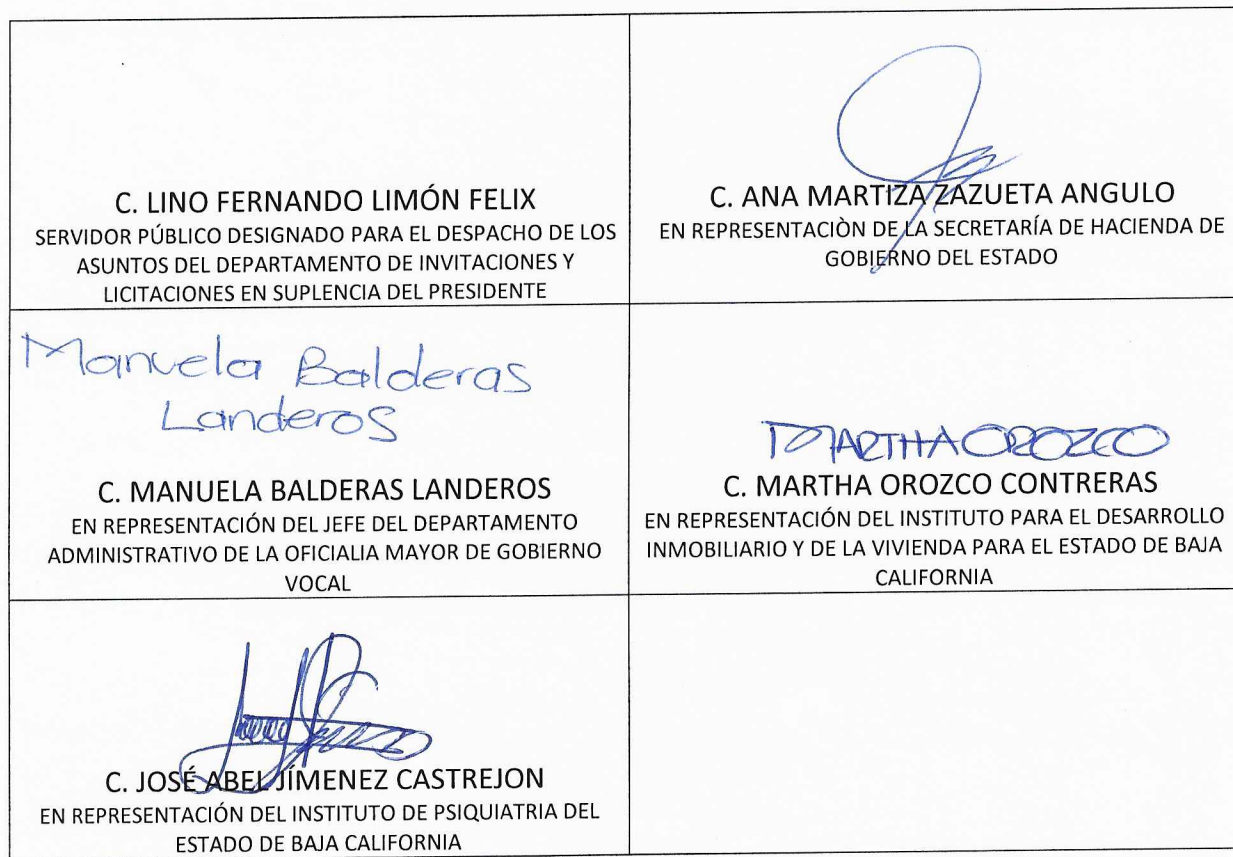 C. LINO FERNANDO LIMÓN FELIX
SERVIDOR PÚBLICO DESIGNADO PARA EL DESPACHO DE LOS
ASUNTOS DEL DEPARTAMENTO DE INVITACIONES Y
LICITACIONES EN SUPLENCIA DEL PRESIDENTE
C. ANA MARTIZA ZAZUETA ANGULO
EN REPRESENTACIÒN DE LA SECRETARÍA DE HACIENDA DE
GOBIERNO DEL ESTADO
Manuela Balderas
Landeros
C. MANUELA BALDERAS LANDEROS
EN REPRESENTACIÓN DEL JEFE DEL DEPARTAMENTO
ADMINISTRATIVO DE LA OFICIALIA MAYOR DE GOBIERNO
VOCAL
MARTHA OROZCO
C. MARTHA OROZCO CONTRERAS
EN REPRESENTACIÓN DEL INSTITUTO PARA EL DESARROLLO
INMOBILIARIO Y DE LA VIVIENDA PARA EL ESTADO DE BAJA
CALIFORNIA
C. JOSÉ ABEL JÍMENEZ CASTREJON
EN REPRESENTACIÓN DEL INSTITUTO DE PSIQUIATRIA DEL
ESTADO DE BAJA CALIFORNIA